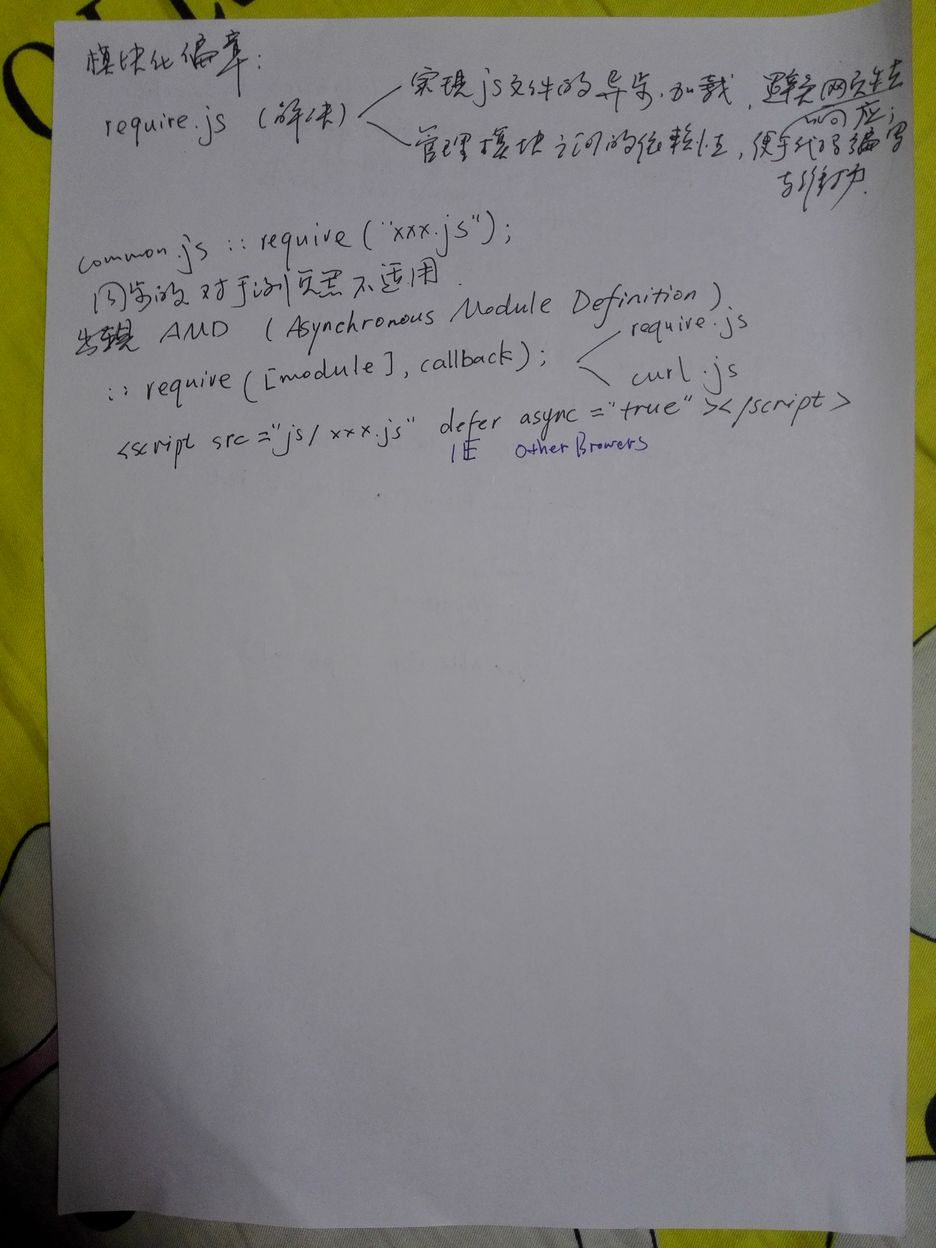 模块化编章:
require.js (解决)
实现js文件的异步加载, 避免网页失去
响应;
管理模块之间的依赖性, 便于代码编写
与维护.
common.js :: require ("xxx.js");
同步的对于浏览器不适用.
出现 AMD (Asynchronous Module Definition).
:: require ([module], callback);
require.js
curl.js
<script src="js/xxx.js" defer async="true"></script>
IE Other Browers